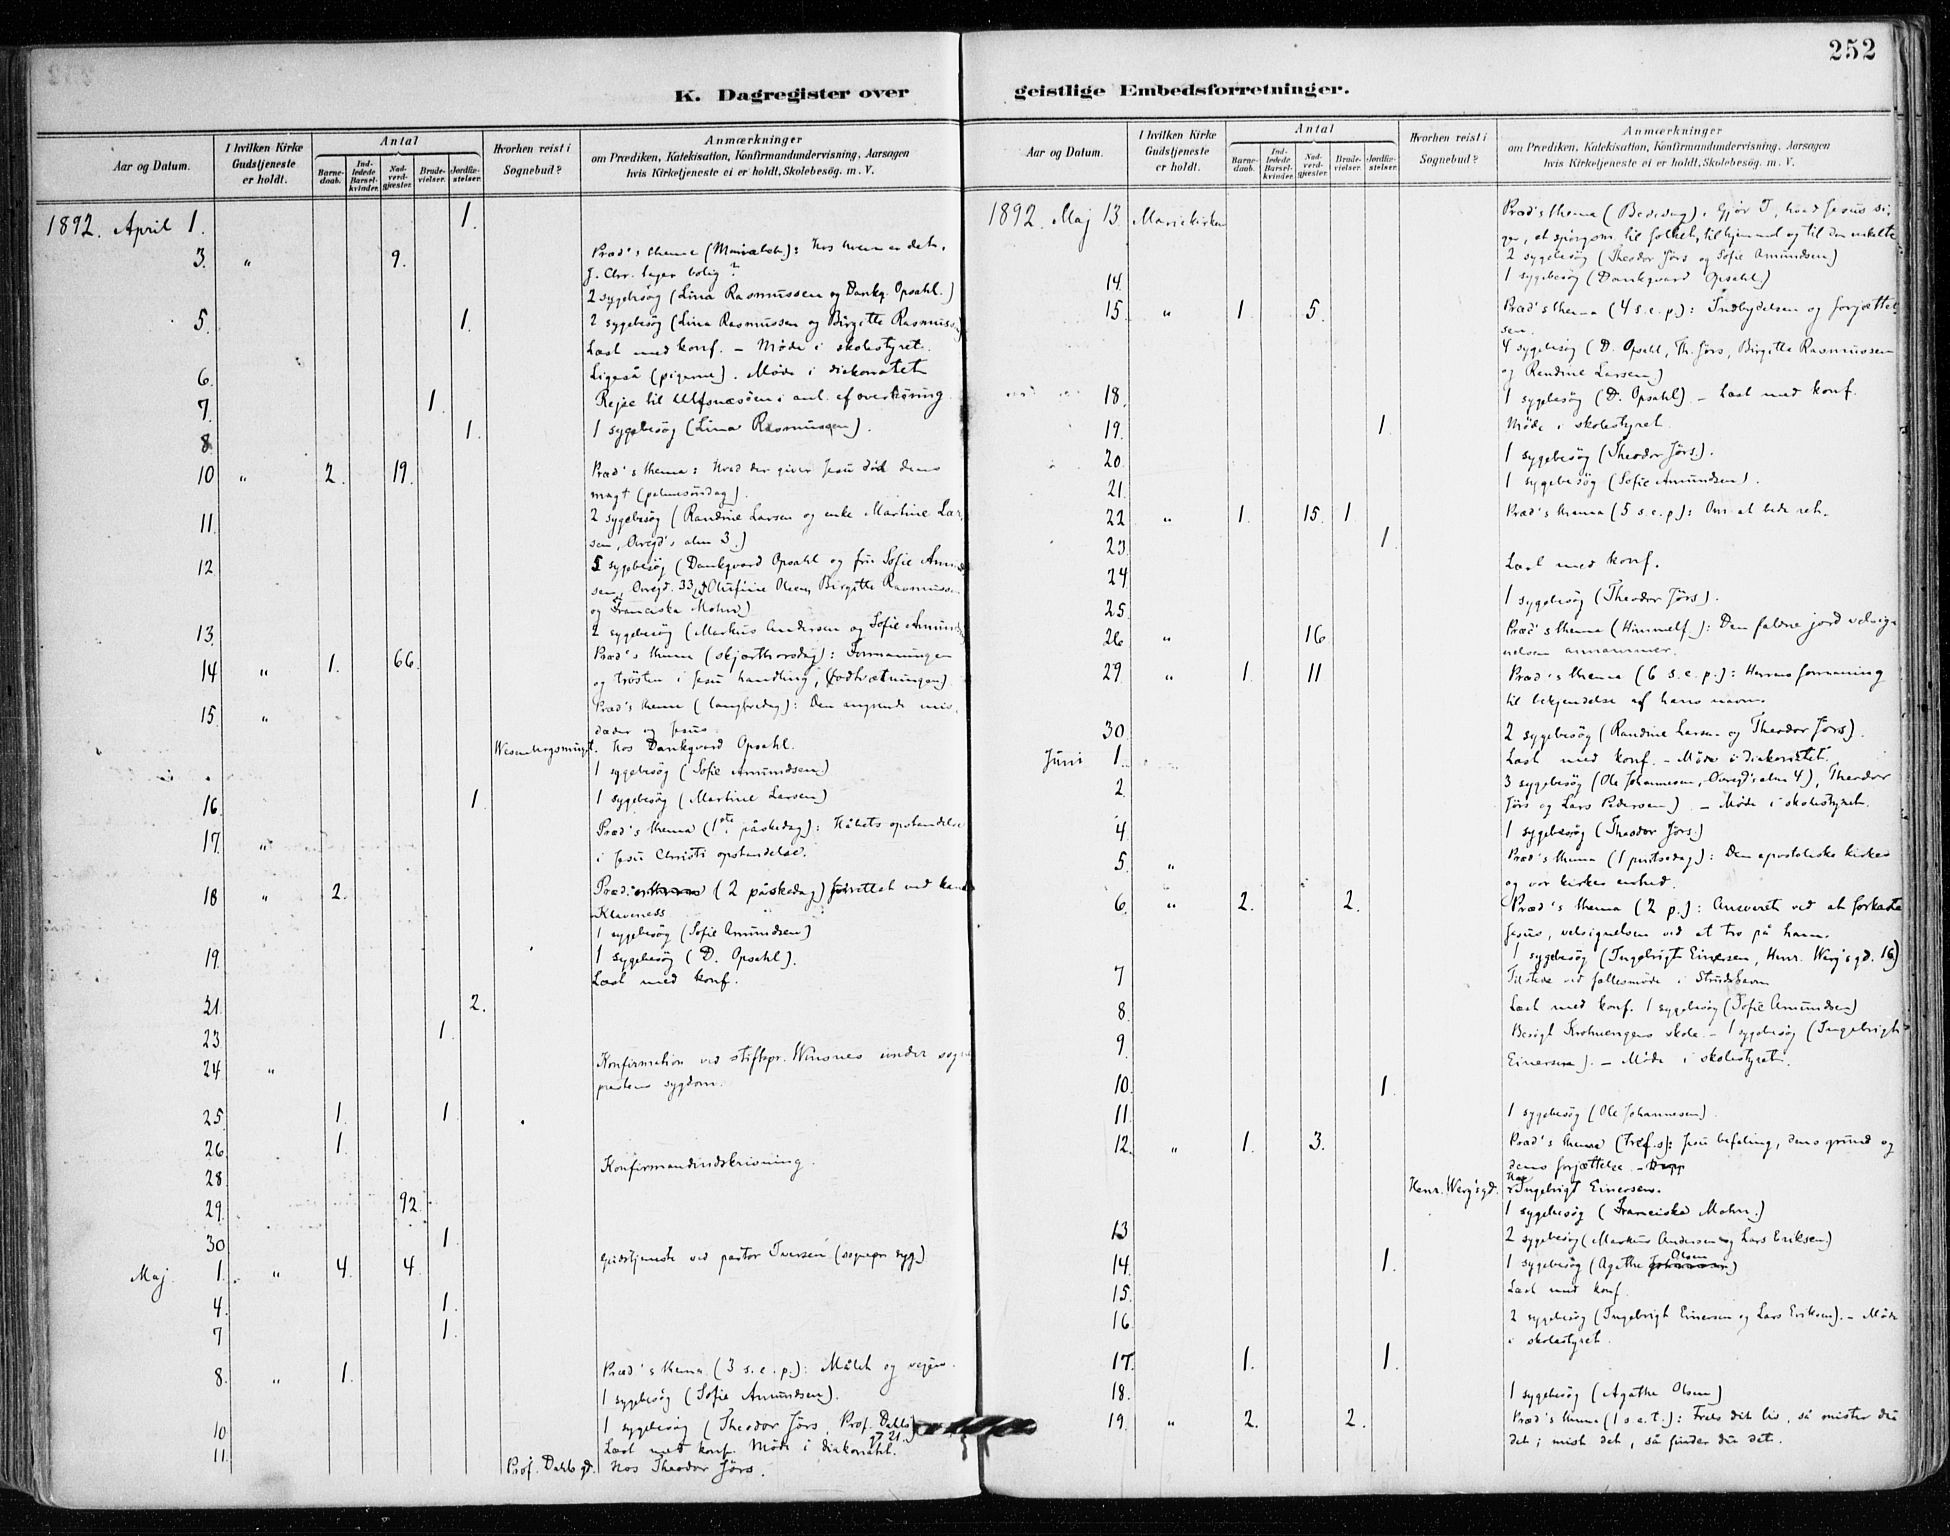 252
K. Dagregister over
Aar og Datum.
I hvilken Kirke Gudstjeneste er holdt.
Antal
Barnedaab.
Indledede Barselkvinder.
Nadverdgjæster.
Brudevielser.
Jordfæstelser.
Hvorhen reist i Sognebud?
Anmærkninger
om Prædiken, Katekisation, Konfirmandundervisning, Aarsagen
hvis Kirketjeneste ei er holdt, Skolebesøg. m. V.
1892. April 1. 1.
3. " 9. Præd's thema (Mariæbeb.): Hos hvem er det,
J. Chr. tager bolig?
2 sygebesög (Lina Rasmussen og Dankq. Opsahl.)
5. 1. 2 sygebesög (Lina Rasmussen og Birgitte Rasmussen)
Læst med konf. – Møde i skolestyret.
6. Ligeså (pigerne). Møde i diakoratet
7. 1. Rejse til Ulfsnæsöen i anl. af overhöring
8. 1. 1 sygebesög (Lina Rasmussen).
10 " 2. 19. Præd's thema: Hvad der giver Jesu död dens
magt (palmesöndag).
11. 2 sygebesög (Randine Larsen og enke Martine Lar-
sen, Øvregd's alm 3.)
12 5 sygebesög (Dankqvard Opsahl og fru Sofie Amund
sen, Øvregd. 33, Olufine Olsen, Birgitte Rasmussen
og Franciska Mohn)
13. 2 sygebesög (Markus Andersen og Sofie Amunds
14 " 1. 66. Præd's thema (skjærthorsdag): Formaningen
og trösten i Jesu handling, (fodtvætningen)
15 " Præd's thema (langfredag): Den angrende mis-
dæder og Jesus.
Wesenbergsmuget. Hos Dankqvard Opsahl.
1 sygebesög (Sofie Amundsen)
16 1. 1 sygebesög (Martine Larsen)
17. " Præd's thema (1ste påskedag): Håbets opstandelse
i Jesu Christi opstandelse.
18 " 2. Præd. (2 påskedag) forrettet ved kand
Klaveness
1 sygebesög (Sofie Amundsen)
19. 1 sygebesög (D. Opsahl).
Læst med konf.
21. 2.
23 1.
24 " Konfirmation ved stiftspr. Wensnes under sogne
præstens sygdom.
25 1. 1.
26 1.
28 Konfirmandindskrivning.
29. 92.
30 1.
Maj. 1. " 4. 4. Gudstjeneste ved pastor Iversen (sognepr syg)
4. 1.
7 1.
8. " 1. Præd's thema (3 s. e. p.): Målet og vejen.
1 sygebesög (Sofie Amundsen).
10 1 sygebesög (Theodor Jörs, Prof. Dahls
gd 21.)
11. Læst med konf. Møde i diakoratet.
Prof. Dahls gd. Hos Theodor Jörs.
geistlige Embedsforretninger.
Aar og Datum.
I hvilken Kirke Gudstjeneste er holdt.
Antal
Barnedaab.
Indledede Barselkvinder.
Nadverdgjæster.
Brudevielser.
Jordfæstelser.
Hvorhen reist i Sognebud?
Anmærkninger
om Prædiken, Katekisation, Konfirmandundervisning, Aarsagen
hvis Kirketjeneste ei er holdt, Skolebesøg. m. V.
1892. Maj 13 Mariekirken Præd's thema (Bededag): Gjör I, hvad Jesus si-
ger, et spörgsm. til folket, til hjemmet og til den enkelte
2 sygebesög (Theodor Jörs og Sofie Amundsen)
14. 1 sygebesög (Dankqvard Opsahl)
15 " 1. 5. Præd's thema (4 s. e. p.): Indbydelsen og forjættel-
sen.
4 sygebesög (D. Opsahl, Th. Jörs, Birgitte Rasmussen
og Randine Larsen)
18. 1 sygebesög (D. Opsahl). – Læst med konf.
19. 1. Møde i skolestyret.
20 1 sygebesög (Theodor Jörs).
21. 1 sygebesög (Sofie Amundsen).
22 " 1. 15. 1 Præd's thema (5 s. e. p.): Om at bede ret.
23 1.
24 Læst med konf.
25. 1 sygebesög (Theodor Jörs).
26 " 16. Præd's thema (Himmelf.): Den faldne jord velsig-
nelsen annammer.
29. " 1. 11 Præd's thema (6 s. e. p.): Herrens formaning
til bekjendelse af hans navn.
30 2 sygebesög (Randine Larsen og Theodor Jörs).
Juni 1. Læst med konf. – Møde i diakoratet.
2. 3 sygebesög (Ole Johannesen, Øvregd's alm 4), Theodor
Jörs og Lars Pedersen) – Møde i skolestyret.
4 1 sygebesög (Theodor Jörs.)
5. " Præd's thema (1 pintsedag): Den apostoliske kirkes
og vor kirkes enhed.
6. " 2. 2. Præd's thema (2 p.): Ansvaret ved at forkaste
Jesus, velsignelsen ved at tro på ham.
1 sygebesög (Ingebrigt Einersen, Henr. Werg's gd. 16)
7 Tilstede ved fællesmøde i Strudshavn
8. Læst med konf. 1 sygebesög (Sofie Amundsen)
9. Besögt Krohnengens skole – 1 sygebesög (Ingebrigt
Einersen). – Møde i skolestyret.
10. 1.
11. 1 sygebesög (Ole Johannesen).
12. " 1. 3. Præd's thema (Tref.s): Jesu befaling, dens grund og
dens forjættelse.
Henr. Werg's gd. Hos Ingebrigt Einersen.
1 sygebesög (Franciska Mohn.)
13 2 sygebesög (Markus Andersen og Lars Eriksen)
14. 1. 1 sygebesög (Agathe Olsen)
15. Læst med konf.
16. 2 sygebesög (Ingebrigt Einersen og Lars Eriksen). – Møde
i skolestyret.
17. 1. 1.
18. 1 sygebesög (Agathe Olsen)
19. " 2. 2. Præd's thema (1 s e. t.): Frels dit liv, så mister du
det; mist det, så finder du det.